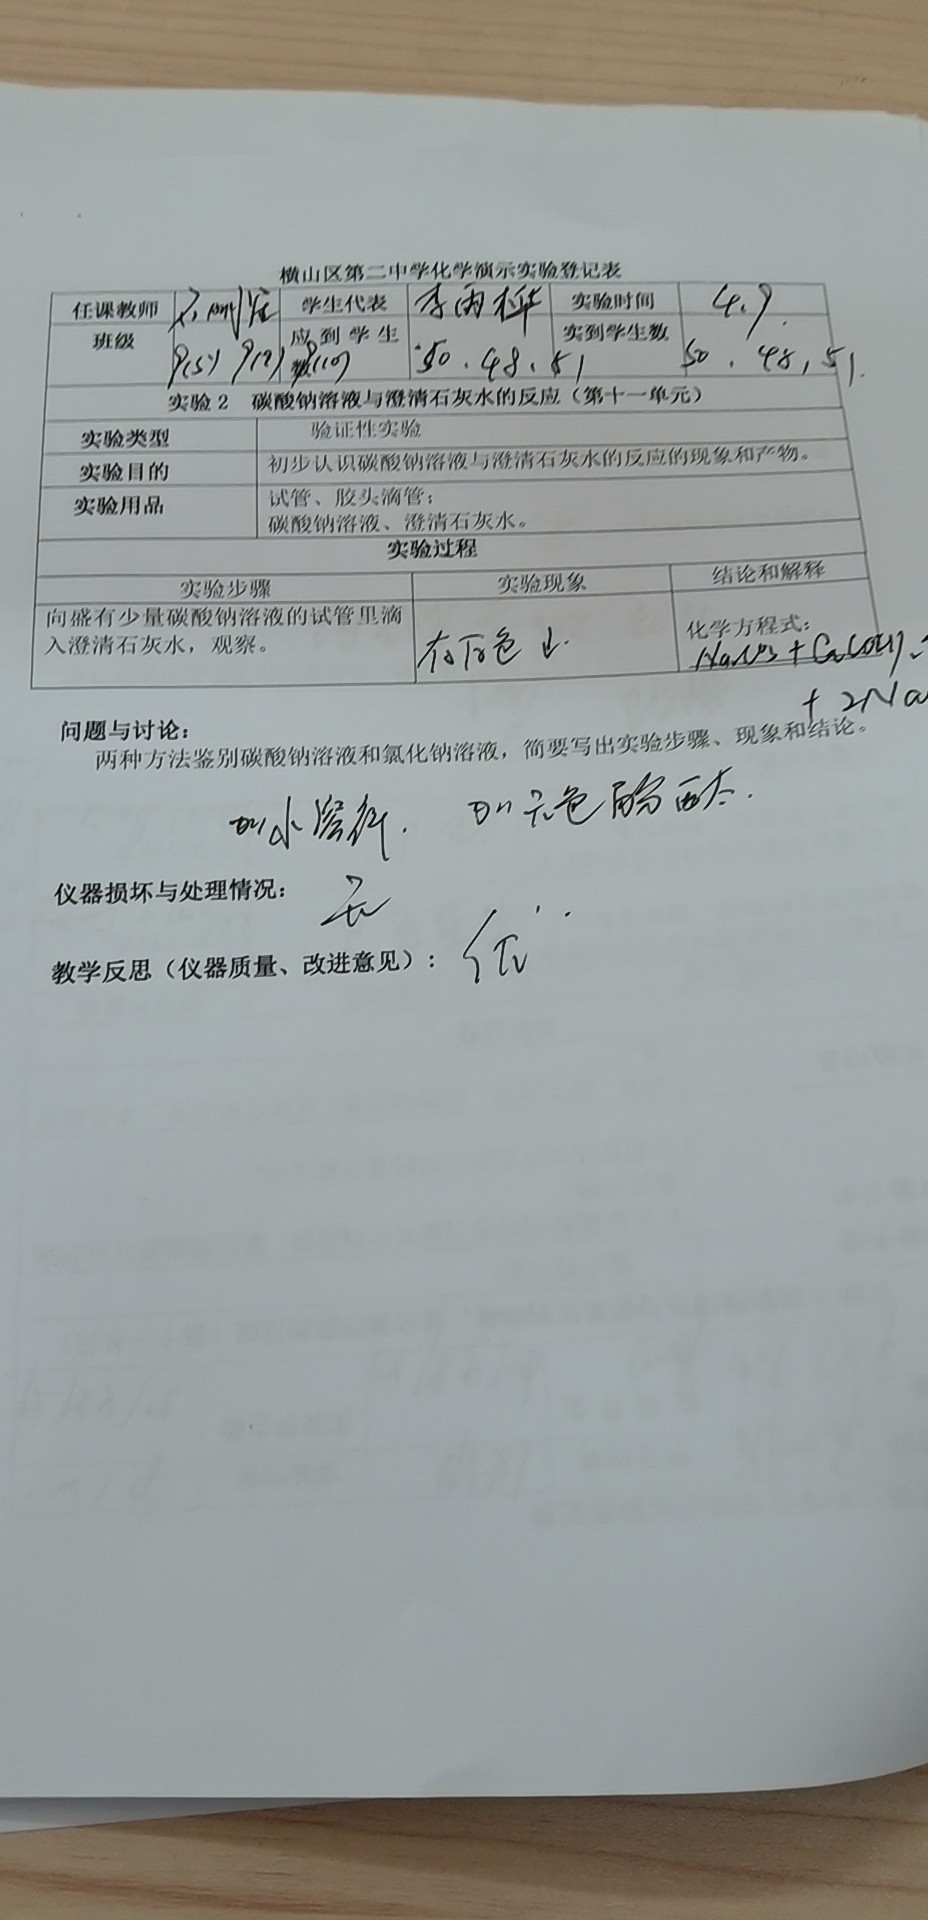 横山区第二中学化学演示实验登记表
任课教师 学生代表 李雨桦 实验时间 4.9.
班级 9(5) 9(9) 9(10) 应到学生数 50.48.51 实到学生数 50.48,51.
实验2 碳酸钠溶液与澄清石灰水的反应（第十一单元）
实验类型 验证性实验
实验目的 初步认识碳酸钠溶液与澄清石灰水的反应的现象和产物。
实验用品 试管、胶头滴管；
碳酸钠溶液、澄清石灰水。
实验过程
实验步骤 实验现象 结论和解释
向盛有少量碳酸钠溶液的试管里滴
入澄清石灰水，观察。
有白色↓.
化学方程式：
Na2CO3 + Ca(OH)2
+ 2Na
问题与讨论：
两种方法鉴别碳酸钠溶液和氯化钠溶液，简要写出实验步骤、现象和结论。
加水溶解. 加无色酚酞.
仪器损坏与处理情况： 无
教学反思（仪器质量、改进意见）： 优